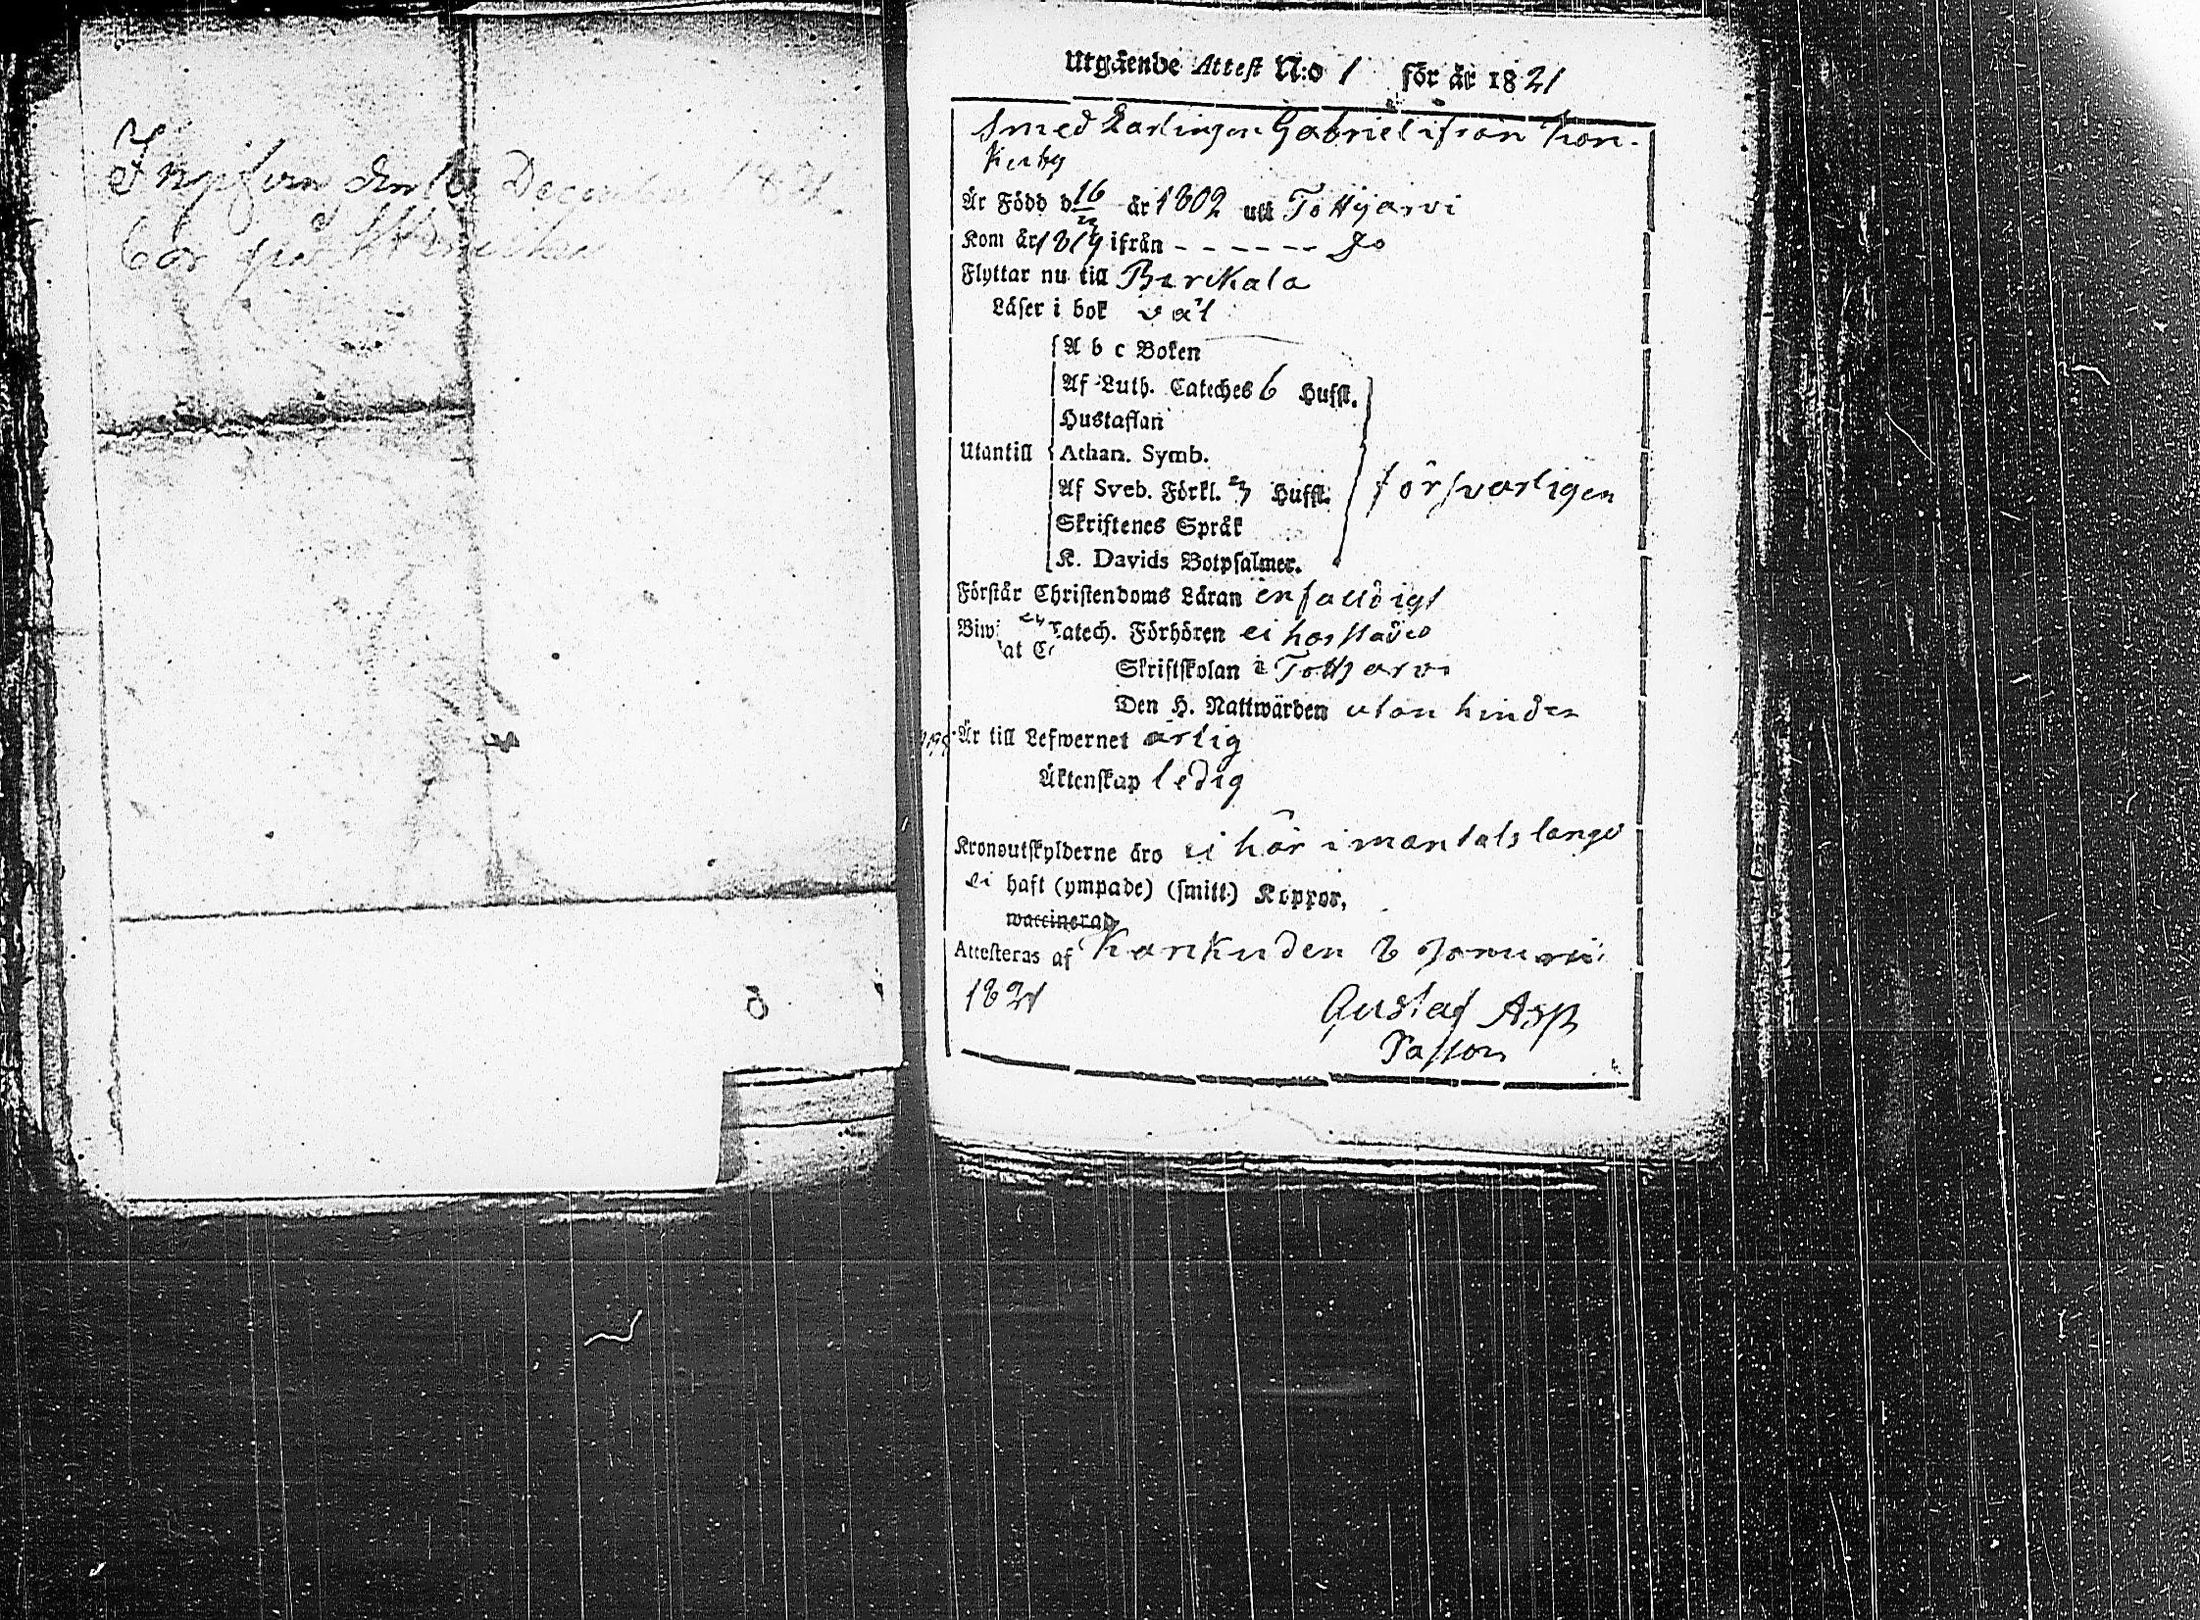 December 1821
Utgående Attest N:o 1 för år 1821
Smed Lärlingen Gabriel ifrån Kar-
ku by
Är Född d. 16 år 1802 uti Tottijärvi
Kom år 1819 ifrån - - - - - - Do
Flyttar nu till Birckala
Läser i bok väl
A b c Boken
Af Luth. Cateches 6 Hufst.
Hustaflan
Utantill Athan. Symb.
Af Sveb. Förkl. Hufst. försvarligen
Skriftenes Språk
K. Davids Botpsalmer.
Förstår Christendoms Läran enfaldigt
Catech. Förhören ei här
Skriftskolan i Tottijarvi
Den H. Nattwärden utan hinder
Är till Lefwernet ärlig
Äktenskap ledig
Kronoutskylderne äro ei här i mantals längd
ei haft (ympade) (smitt.) Koppor,
waccinerad
Attesteras af Karku den 8 Januarii
1821
Gustaf Asp
Pastor